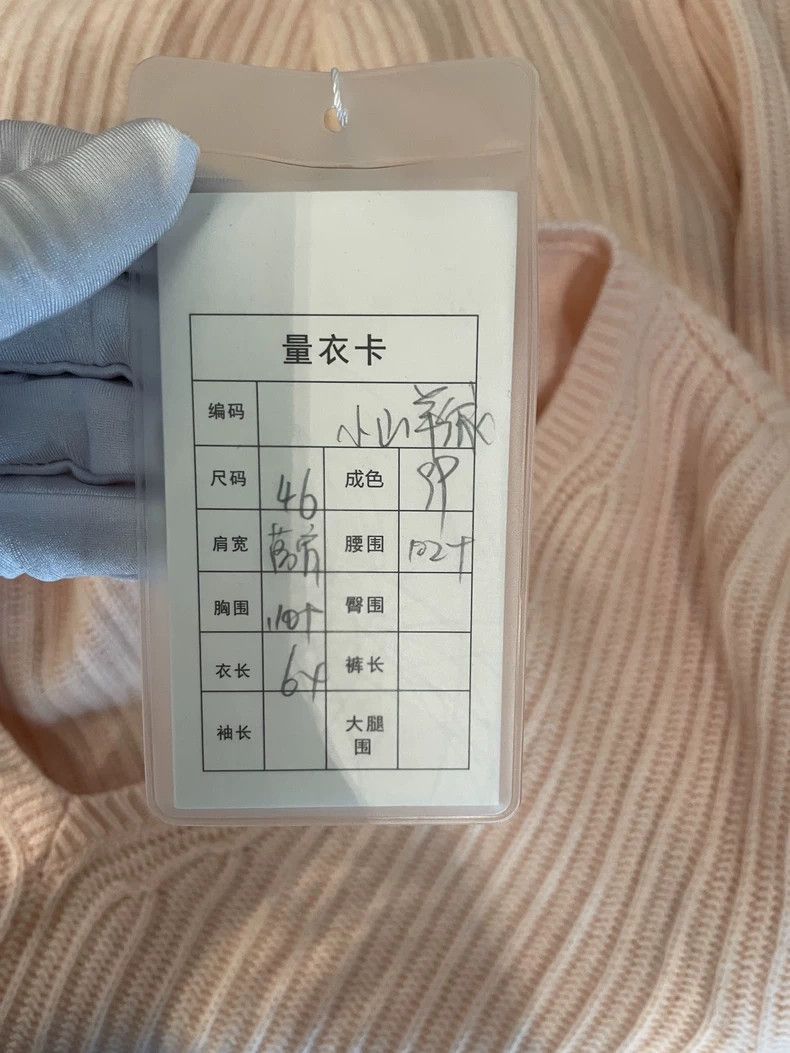 量衣卡
编码 小山羊绒
尺码 46 成色 99
肩宽 落肩 腰围 102+
胸围 110+ 臀围
衣长 64 裤长
袖长 大腿围